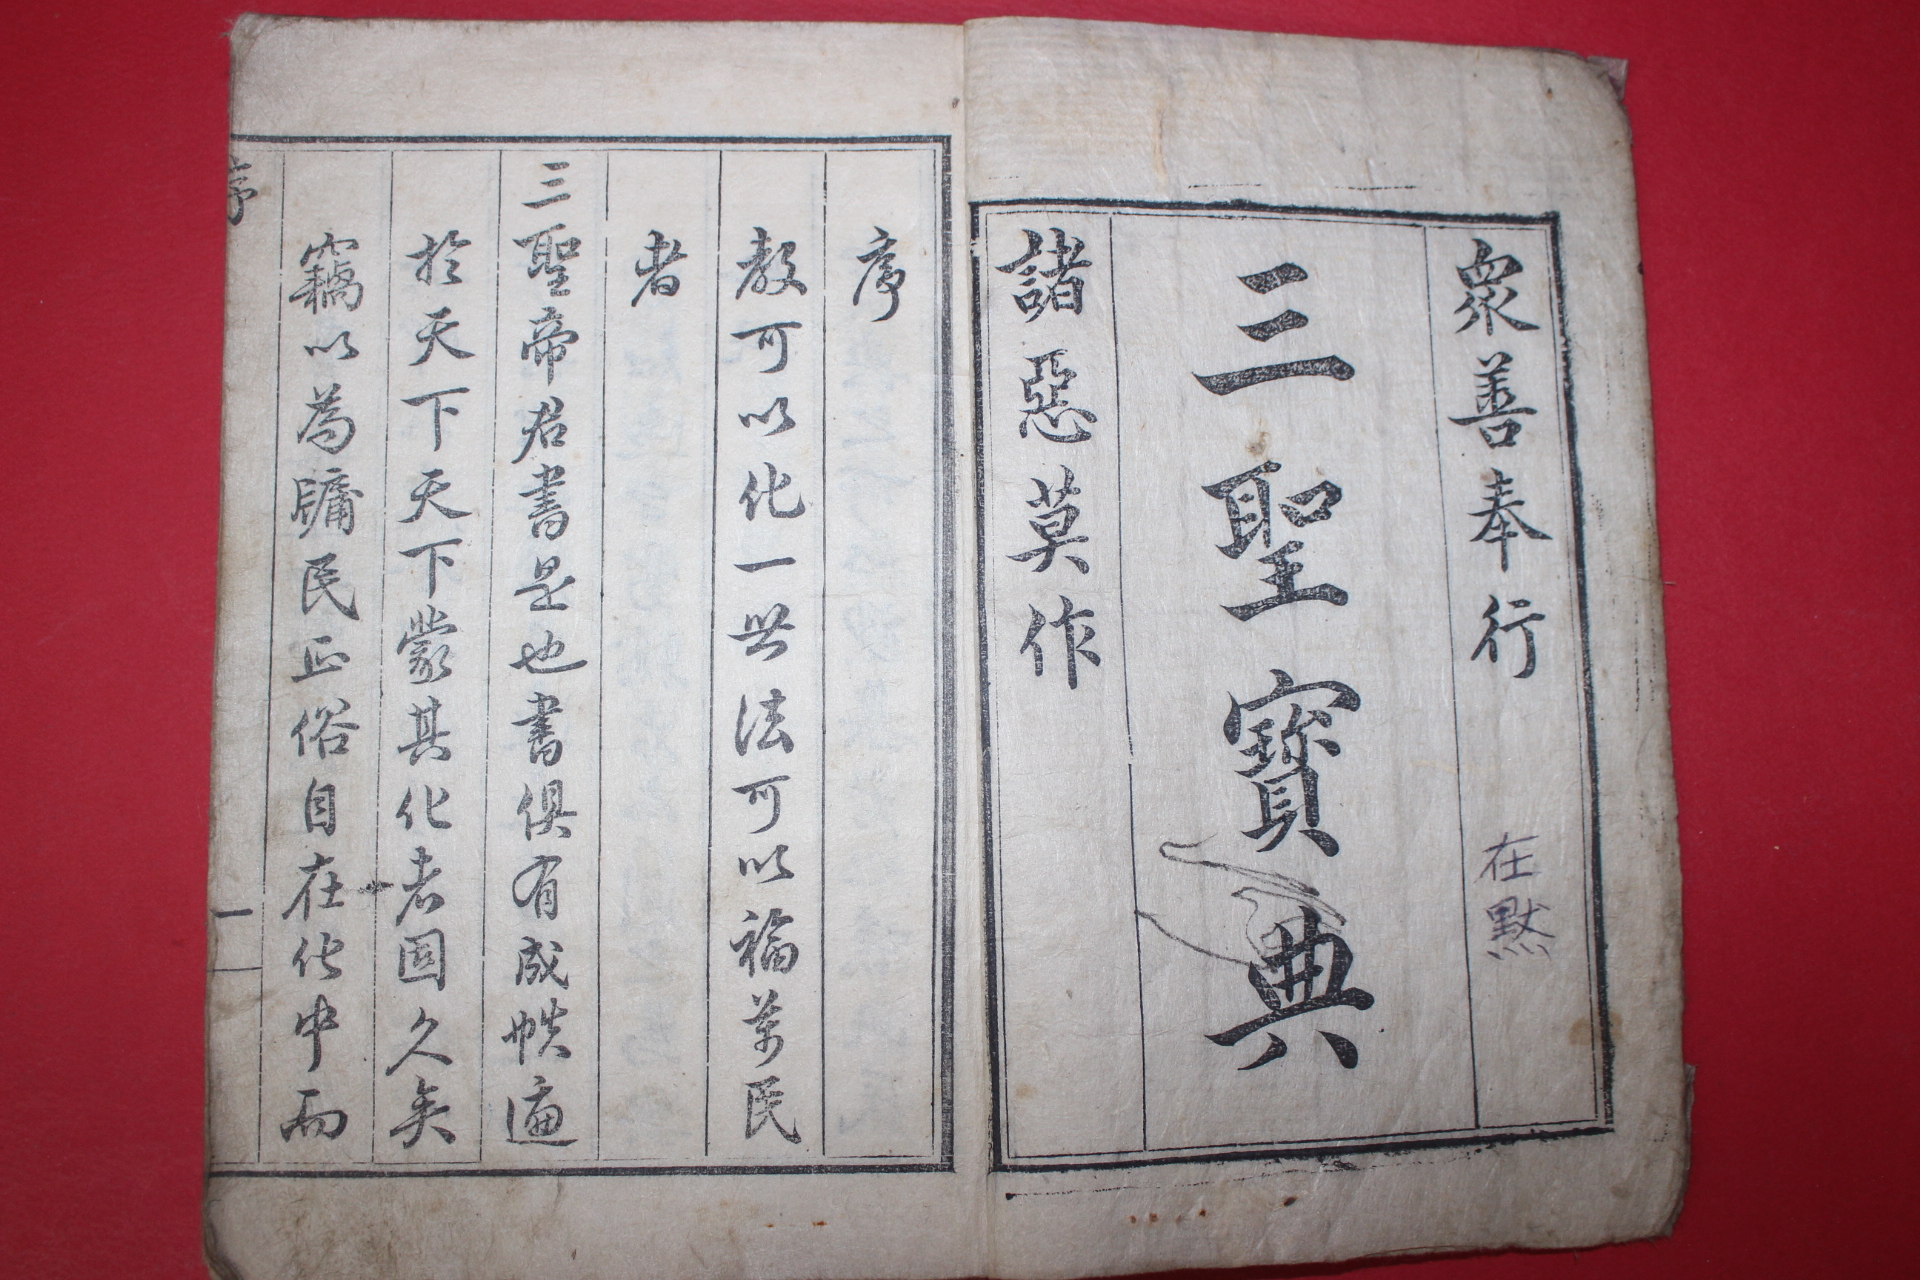 衆善奉行
在默
三聖寶典
諸惡莫作
序
教可以化一世法可以福萬民
者
三聖帝君書是也書俱有成帙遍
於天下天下蒙其化者固久矣
竊以為牖民正俗自在化中而
序
一